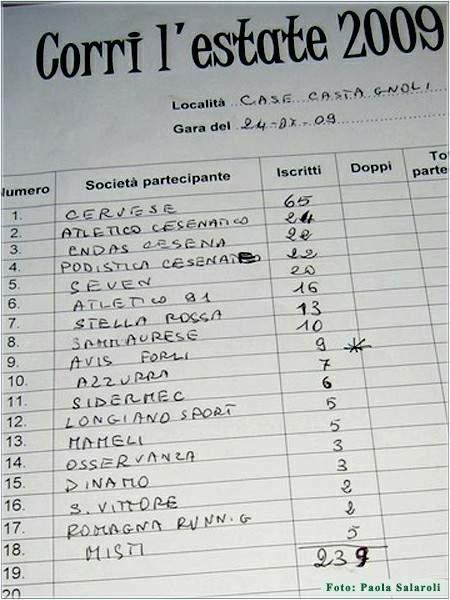 Corri l'estate 2009
Località CASE CASTAGNOLI
Gara del 24-07-09
Numero Società partecipante Iscritti Doppi To
parte
1. CERVESE 65
2. ATLETICO CESENATICO 24
3. ENDAS CESENA 22
4. PODISTICA CESENATE 22
5. SEVEN 20
6. ATLETICO 91 16
7. STELLA ROSSA 13
8. SAMMAURESE 10
9. AVIS FORLI 9 *
10. AZZURRA 7
11. SIDERMEC 6
12. LONGIANO SPORT 5
13. MAMELI 5
14. OSSERVANZA 3
15. DINAMO 3
16. S. VITTORE 2
17. ROMAGNA RUNN.G 2
18. MISTI 5
19. 239
20
Foto: Paola Salaroli